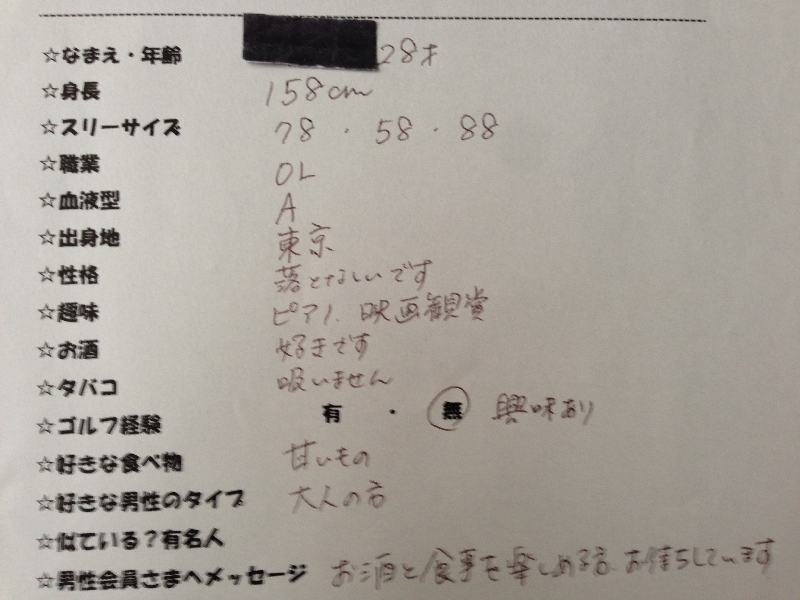 ☆なまえ・年齢 28才
☆身長 158cm
☆スリーサイズ 78・58・88
☆職業 OL
☆血液型 A
☆出身地 東京
☆性格 落となしいです
☆趣味 ピアノ、映画観賞
☆お酒 好きです
☆タバコ 吸いません
☆ゴルフ経験 有・無 興味あり
☆好きな食べ物 甘いもの
☆好きな男性のタイプ 大人の方
☆似ている?有名人
☆男性会員さまへメッセージ お酒と食事を楽しめる方、お待ちしています